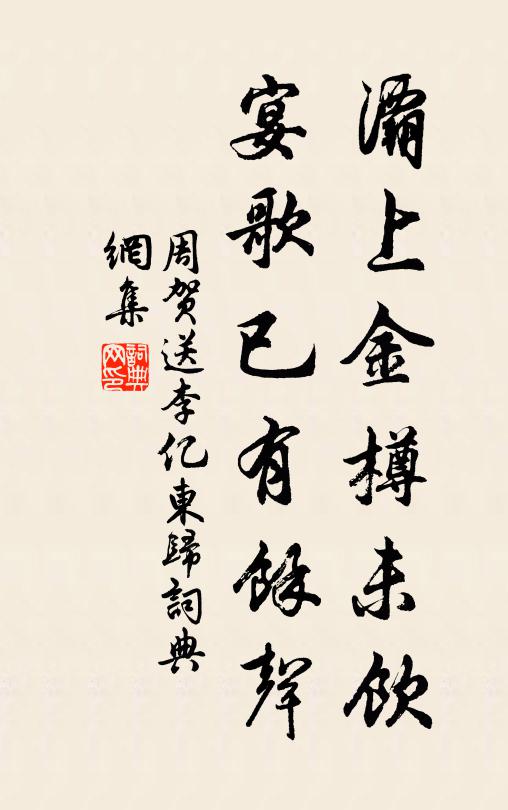 灞上金樽未飲
宴歌已有餘聲
周賀送李亿東歸詞典
網集
詞典
网印